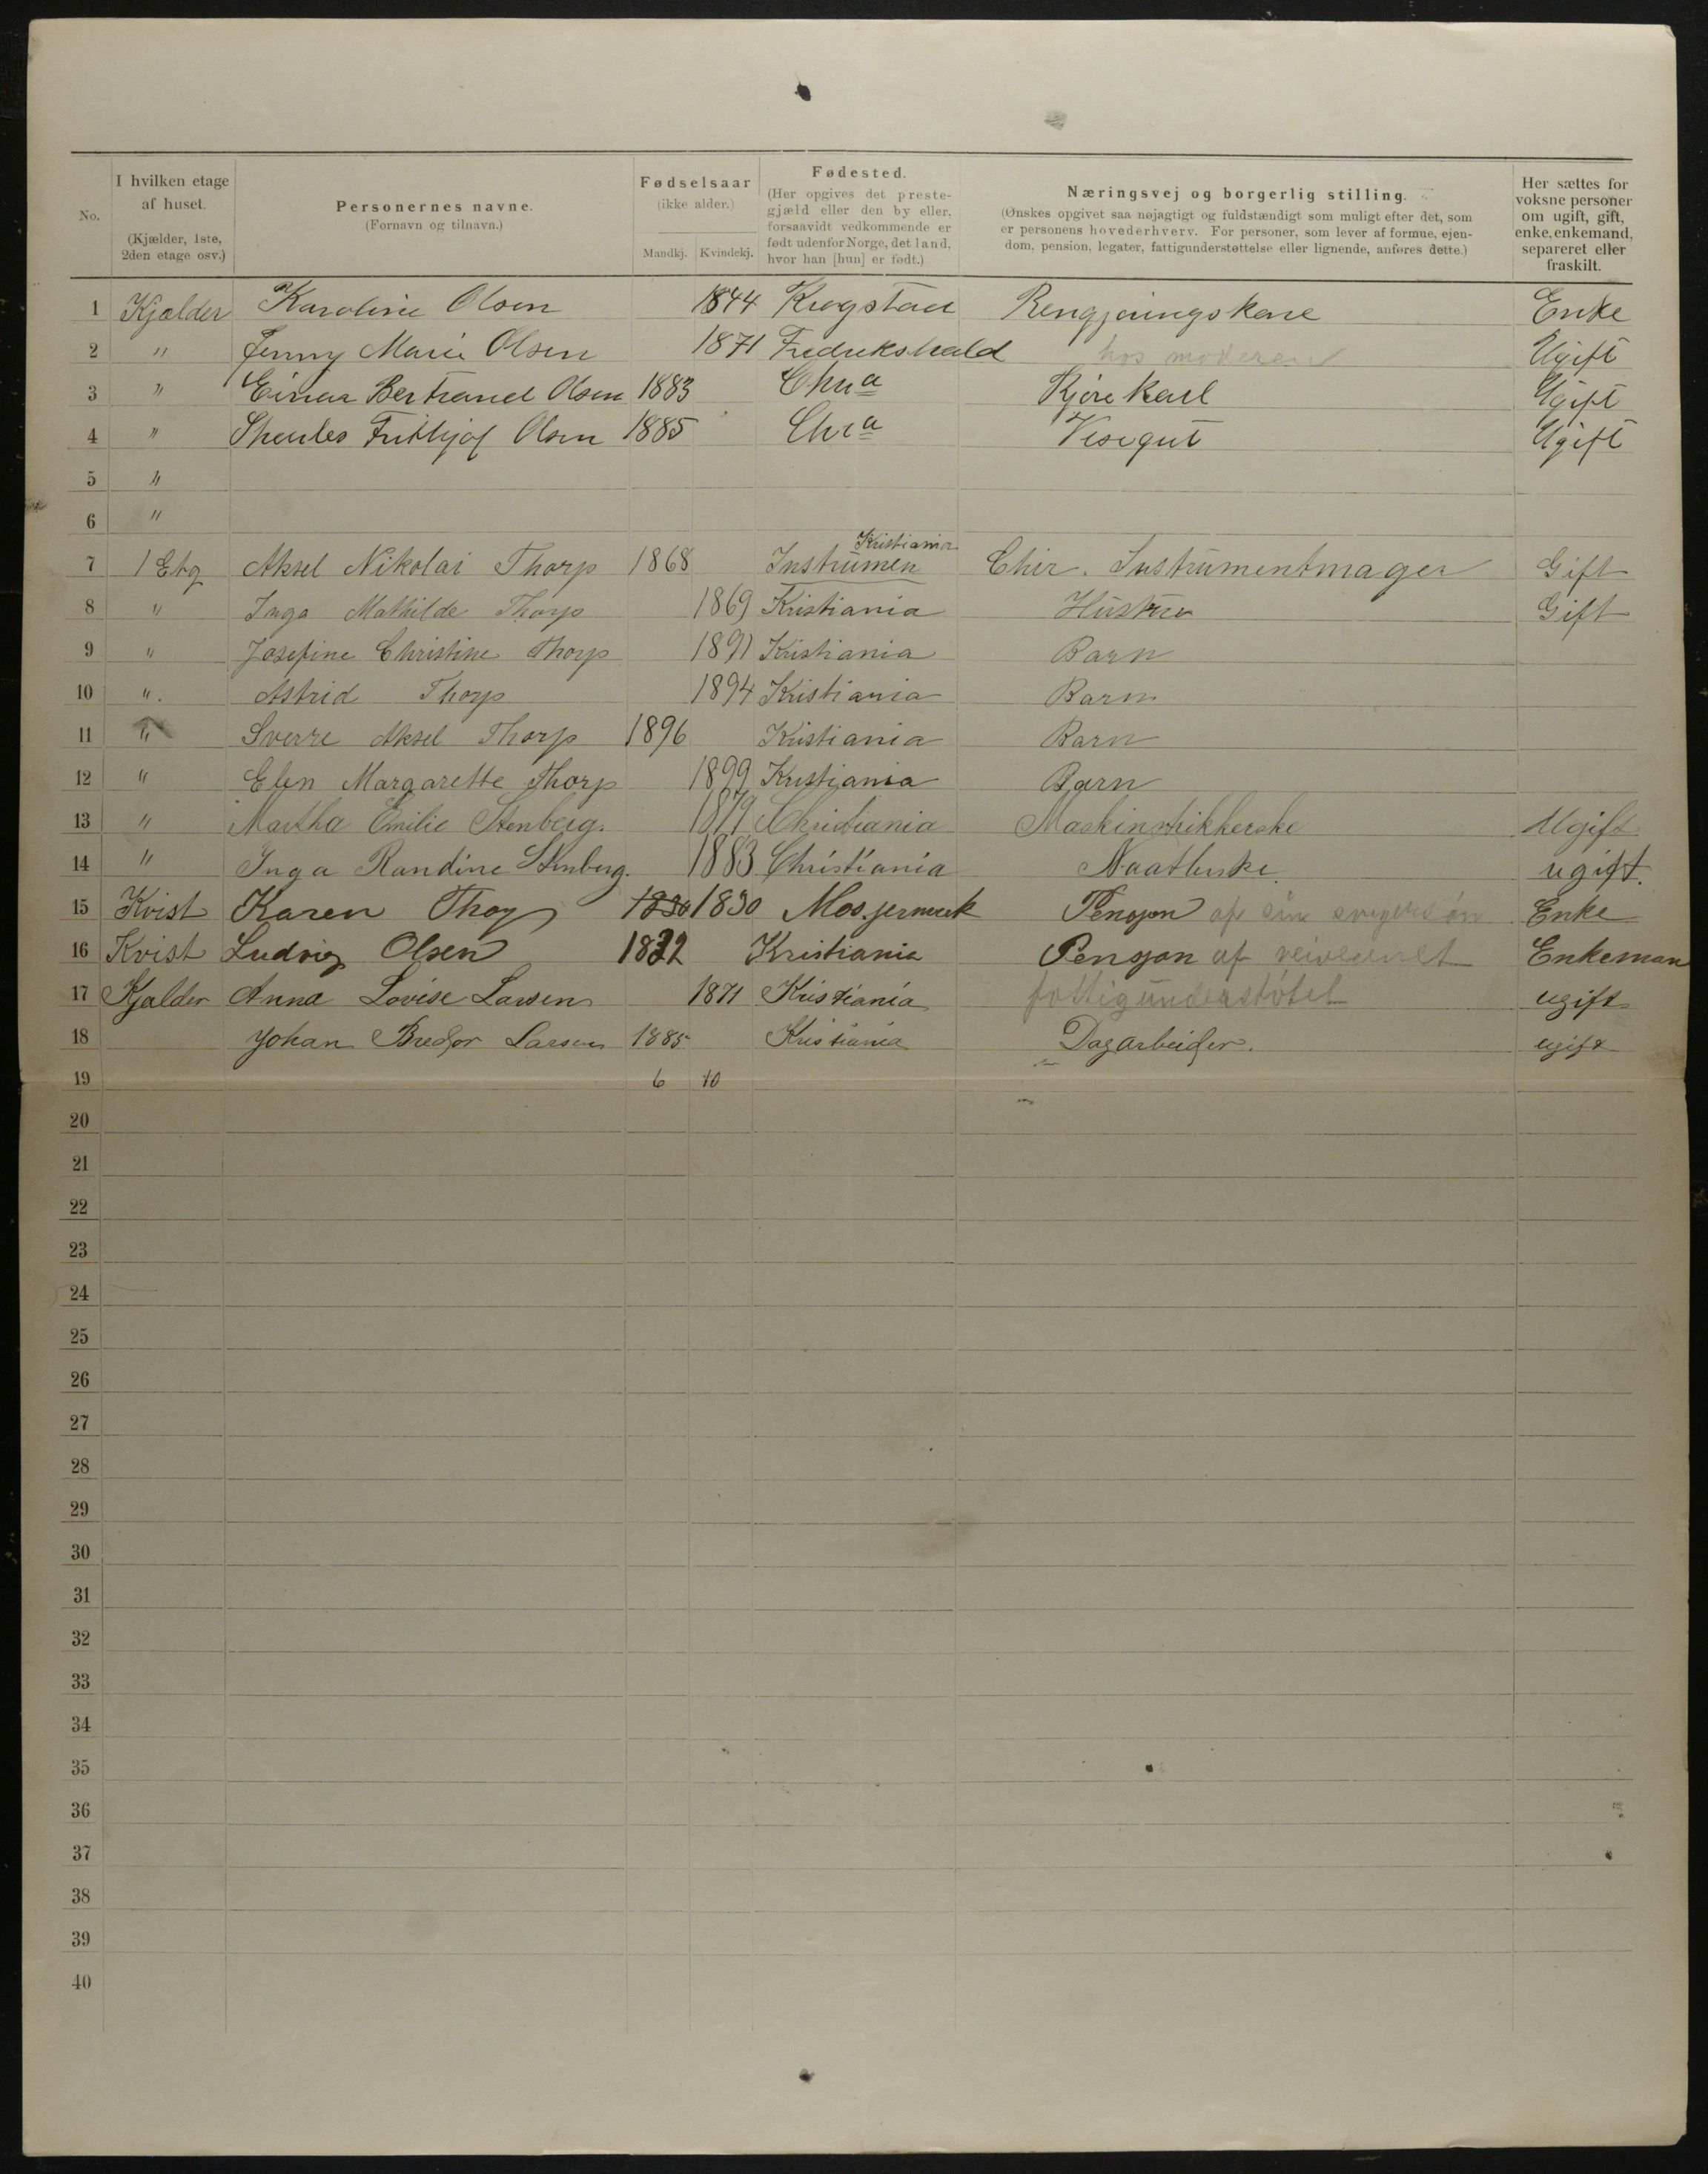 No. | I hvilken etage af huset. (Kjælder, 1ste, 2den etage osv.) | Personernes navne. (Fornavn og tilnavn.) | Fødselsaar (ikke alder.) Mandkj. Kvindekj. | Fødested. (Her opgives det prestegjæld eller den by eller, forsaavidt vedkommende er født udenfor Norge, det land, hvor han [hun] er født.) | Næringsvej og borgerlig stilling. (Ønskes opgivet saa nøjagtigt og fuldstændigt som muligt efter det, som er personens hovederhverv. For personer, som lever af formue, ejendom, pension, legater, fattigunderstøttelse eller lignende, anføres dette.) | Her sættes for voksne personer om ugift, gift, enke, enkemand, separeret eller fraskilt.
1 Kjælder Karoline Olsen 1844 Krogstad Rengjøringskone Enke
2 " Jenny Marie Olsen 1871 Fredrikshald hos moderen Ugift
3 " Einar Bertrand Olsen 1883 Chra Kjørekarl Ugift
4 " Sharles Frithjof Olsen 1885 Chra Visergut Ugift
5 "
6 "
Kristiania
7 1 Etg Aksel Nikolai Thorp 1868 Instrumen Chir. Instrumentmager Gift
8 " Inga Mathilde Thorp 1869 Kristiania Hustru Gift
9 " Josefine Christine Thorp 1891 Kristiania Barn
10 " Astrid Thorp 1894 Kristiania Barn
11 " Sverre Aksel Thorp 1896 Kristiania Barn
12 " Elen Margarethe Thorp 1899 Kristiania Barn
13 " Martha Emilie Stenberg. 1879 Christiania Maskinstrikkerske Ugift
14 " Inga Randine Stenberg. 1883 Christiania Naatlerske. ugift.
15 Kvist Karen Thorp 1830 1830 Mosjermerk Pensjon af sin svigersøn Enke
16 Kvist Ludvig Olsen 1832 Kristiania Pensjon af Enkeman
17 Kjælder Anna Lovise Larsen 1871 Kristiania fattigunderstøtet ugift
18 Johan Bredjor Larsen 1885 Kristiania Dagarbeider. ugift
19 6 10
20
21
22
23
24
25
26
27
28
29
30
31
32
33
34
35
36
37
38
39
40